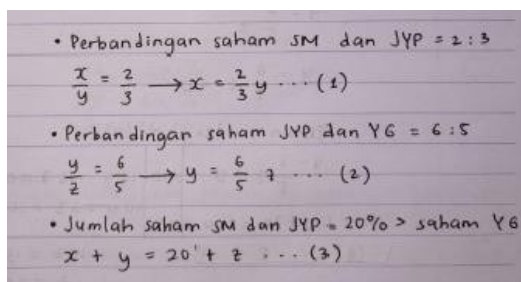 • Perbandingan saham SM dan JYP = 2 : 3
x/y = 2/3 → x = 2/3 y ... (1)
• Perbandingan saham JYP dan YG = 6 : 5
y/z = 6/5 → y = 6/5 z ... (2)
• Jumlah saham SM dan JYP = 20% > saham YG
x + y = 20 + z ... (3)